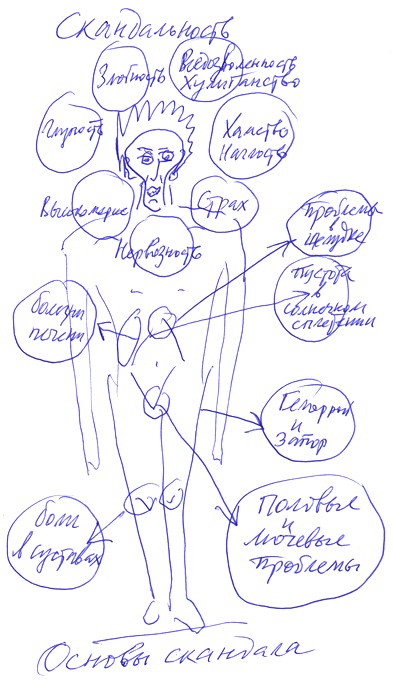 Скандальность
Злобность
Вседозволенность
Хулиганство
Глупость
Хамство
Наглость
Высокомерие
Страх
Нервозность
Проблемы
в
желудке
Пустота
в
солнечном
сплетении
болезни
печени
Геморрой
и
Запор
боли
в суставах
Половые
и
мочевые
проблемы
Основы скандала